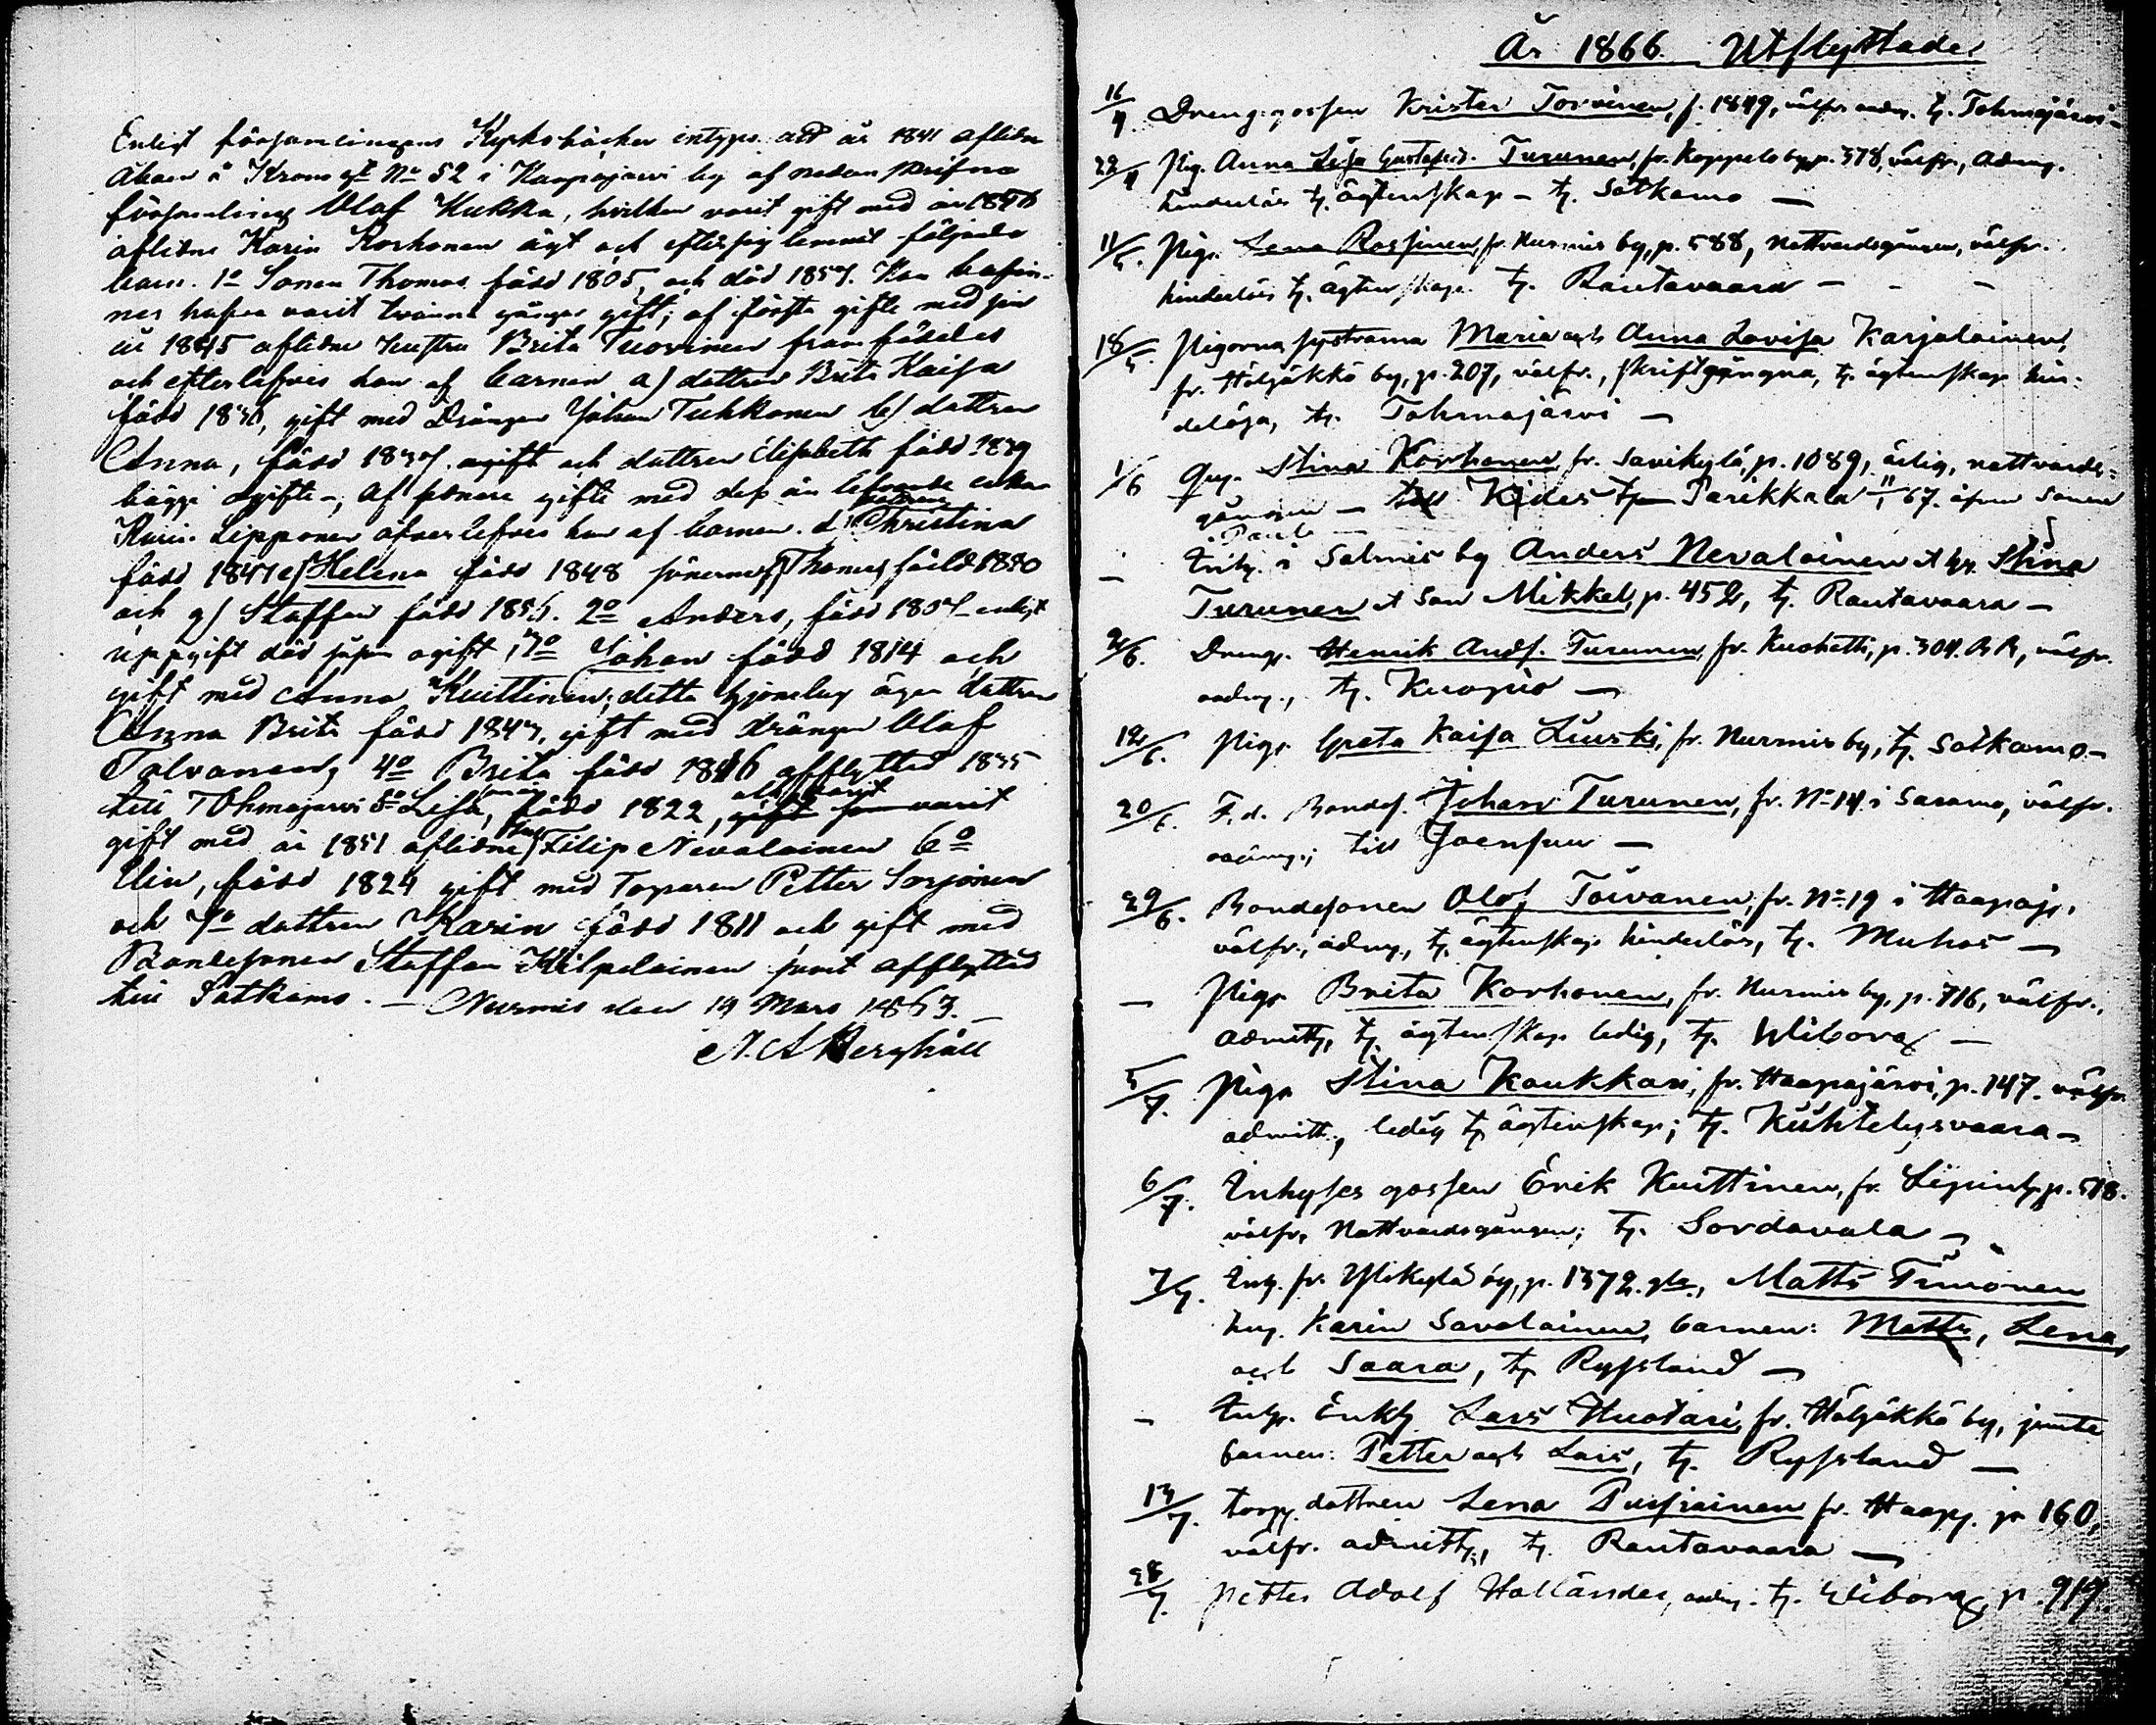 Enligt församlingens Kyrkoböcker intygas att år 1841 aflidne
Åboen å Krono  N:o 52 i Haapajärvi by af nedan skrifne
församling Olof Kukka, hvilken varit gift med år
aflidne Karin Korhonen ägt och efter sig lemnat följande
barn. 1o Sonen Thomas född 1805, och död 1857. Han befin-
nes hafva varit tvänne gånger gift; af första gifte med sin
år 1845 aflidne hustru Brita Tuovinen framföddes
och efterlefves han af barnen a) dottren Brita Kaisa
född 1836, gift med Drängen Johan Tuhkanen b) dottren
Anna, född 1837 ogift och dottren Elisabeth född 1839
bägge ogifta -, Af senare gifte med dess än lefvande enka
Karin Lipponen öfverlefves han af barnen. d) Christina
född 1847 e) Helena född 1848 sönerne f) Thomas född 1850
och g) Staffan född 1856. 2o Anders, född 1807 enligt
uppgift död såsom ogift, 3o Johan född 1814 och
gift med Anna Kuittinen; detta hjonelag äger dottren
Anna Brita född 1843, gift med drängen Olof
Tolvanen, 4o Brita född 1816 afflyttad 1835
till Tohmajärvi 5o Lisa, född 1822, gift som varit
gift med år 1851 aflidne Filip Nevalainen 6o
Elin, född 1824 gift med Torparen Petter Sorjonen
och 7o dottren Karin född 1811 och gift med
Bondesonen Staffan Kilpelainen samt afflyttad
till Sotkamo. - Nurmis den 19 Mars 1863.
N. A. Berghäll
År 1866. Utflyttade
16/4. Drenggossen Krister Torvinen, f. 1849, välfr. admg. t. Tohmajärvi -
22/4 Pig. Anna Lisa Gustafsd. Turunen, fr. Koppelo by p. 378, välfr., admg.
hinderlös t. ägtenskap - t. Sotkamo -
11/5. Piga Lena Rossinen, fr. Nurmis by, p. 588, nattvardsgången, välfr.
hinderlös t. ägtenskap. t. Rautavaara - - -
18/5. Pigorna systrarna Maria och Anna Lovisa Karjalainen,
fr. Höljäkkä by, p. 207, välfr., skriftgångna, t. ägtenskap hin-
derlösa, t. Tohmajärvi -
1/6 Qvp. Stina Korhonen fr. Savikylä, p. 1089, ärlig, nattvards-
gången - till Kides t. Parikkala 67. äfven sonen
Paul
- Inh. i Salmis by Anders Nevalainen et hu. Stina
Turunen et son Mikkel, p. 452, t. Rautavaara -
2/6. Dreng. Henrik Andf. Turunen, fr. Kuohatti, p. 304. , välfr.
admg., t. Kuopio -
12/6. Piga Greta Kaisa Liuski, fr. Nurmis by, t. Sotkamo -
20/6. F. d. Bondes. Johan Turunen, fr. N:o 14 i Saramo, välfr.
admg.; till Joensuu -
29/6. Bondesonen Olof Toivanen, fr. N:o 19 i Haapaj.
välfr., admg., t. ägtenskap hinderlös, t. Muhos -
- Piga Brita Korhonen, fr. Nurmis by, p. 716, välfr.,
admitt, t. ägtenskap ledig, t. Wiborg -
5/7. Piga Stina Kaukkari, fr. Haapajärvi, p. 147. välfr.
admitt., ledig t. ägtenskap; t. Kiihtelysvaara -
6/7. Inhyses gossen Erik Kuittinen, fr. Lipin p. 518.
välfr. Nattvardsgången; t. Sordavala -
7/7. Inh. fr. Ylikylä by, p. 1372. , Matts Timonen
hu. Karin Savolainen, barnen: Matts, Lena,
och Saara, t. Ryssland -
- Inh. Enkl. Lars Huotari, fr. Höljäkkä by, jemte
barnen: Petter och Lars, t. Ryssland -
13/7. Torp. dottren Lena Pussinen fr. Haapj. p. 160,
välfr. admitt., t. Rautavaara -
28/7. Petter Adolf Holländer, admg. t. Wiborg, p. 919.